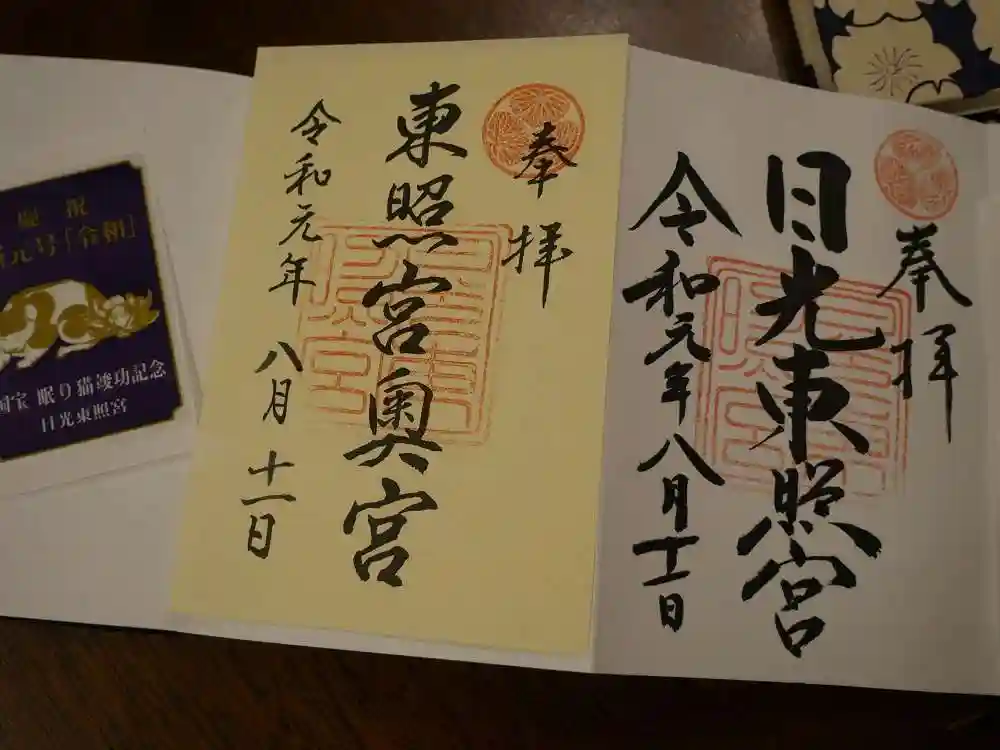 奉拝
日光東照宮
令和元年八月十一日
奉拝
東照宮奥宮
令和元年八月十一日
慶祝
元号「令和」
国宝 眠り猫竣功記念
日光東照宮